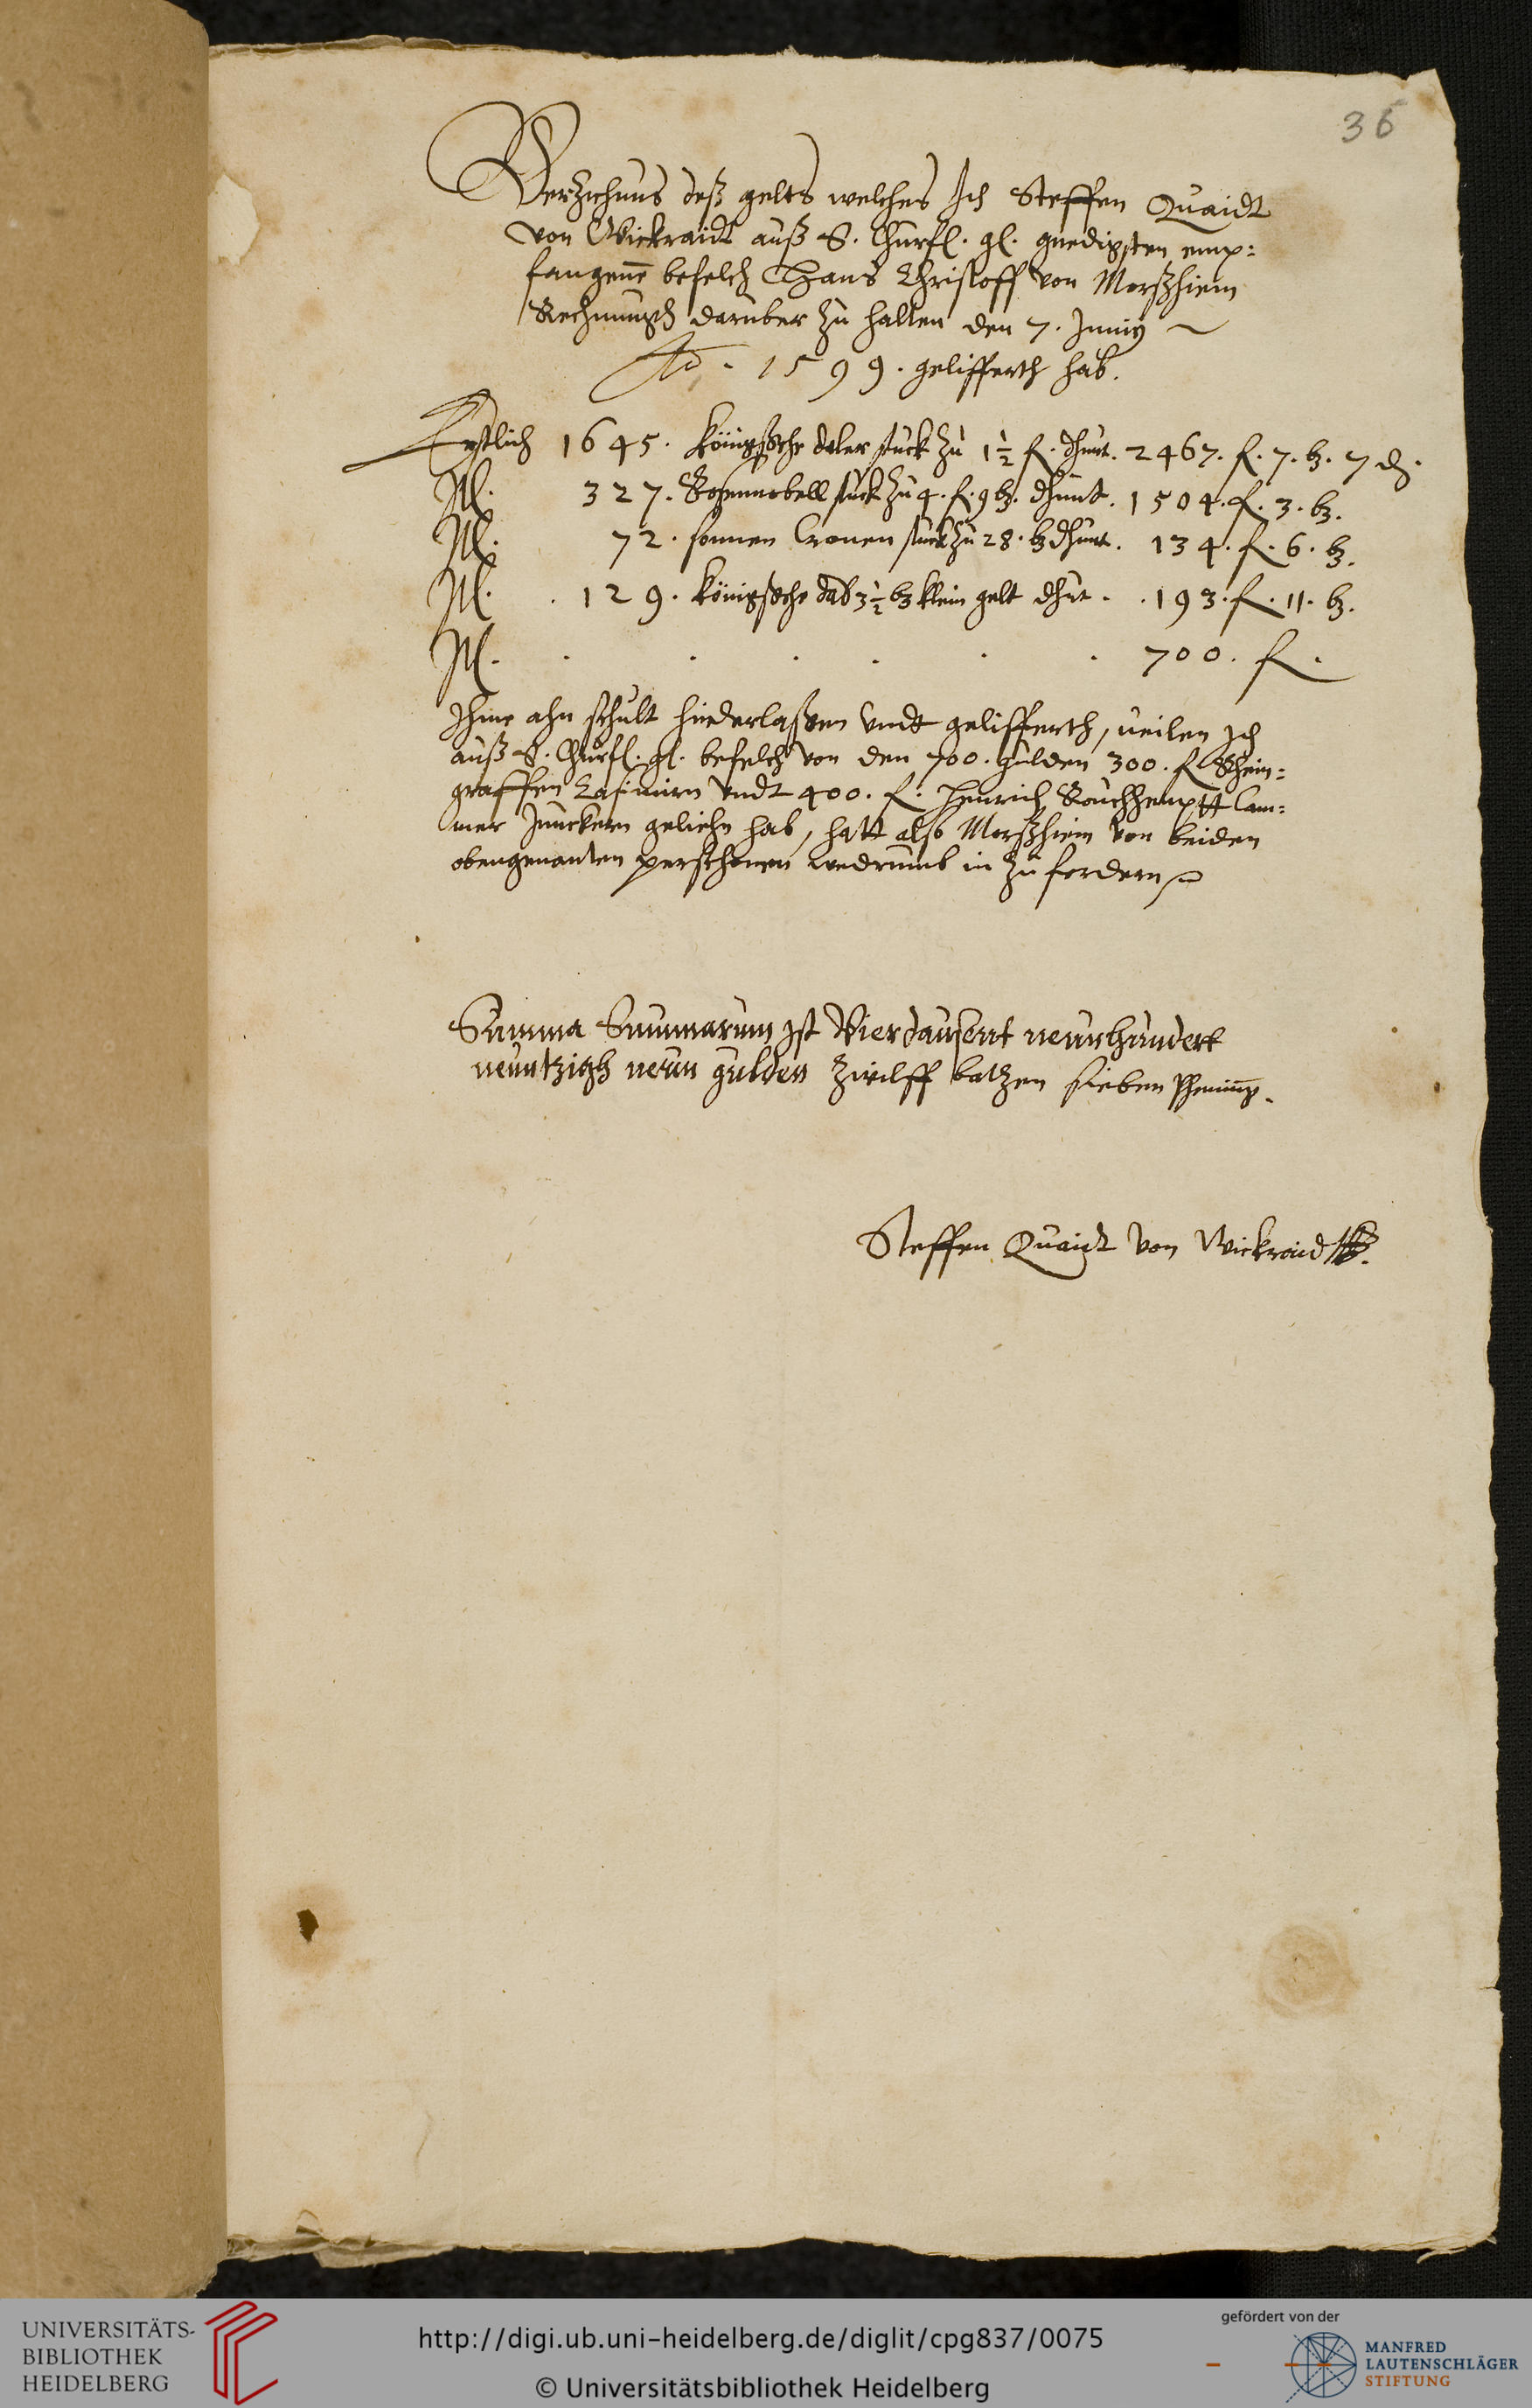 36
Verzichnus deß gelts welches Ich Steffen Quaidt
von Wickraidt auß S. Churfl. gl. gnedigsten emp:
fangene befelch Hans Christoff von Morßhiem
Rechnungh daruber zu halten den 7. Junij
Ao. 1599. gelifferth hab.
Erstlich 1645. königsche daler stuck zu 1½ fl. thut. 2467. fl. 7. bz. 7 d.
It. 327. Rosennobell stuck zu 4. fl. 9 bz. thut. 1504. fl. 3. bz.
It. 72. sonnen Cronen stuck zu 28. bz thut. 134. fl. 6. bz.
It. 129. königsche dab 3½ bz klein gelt thut. 193. fl. 11. bz.
It. 700. fl.
Ihme ahn schult hinderlaßen undt gelifferth, weilen Ich
auß S. Churfl. gl. befelch von den 700. gulden 300. fl Rhein:
graffen Casimirn undt 400. fl. Henrich Cam:
mer Junckern geliehn hab, hatt also Morßhiem von beiden
obengenanten perschonen wedrumb in zu fordern
Summa Summarum Ist Vierdausent neunhundert
neuntzigh neun gulden Zwelff batzen sieben Phening.
Steffen Quaidt von Wickraidt
UNIVERSITÄTS-
BIBLIOTHEK
HEIDELBERG
http://digi.ub.uni-heidelberg.de/diglit/cpg837/0075
© Universitätsbibliothek Heidelberg
gefördert von der
MANFRED
LAUTENSCHLÄGER
STIFTUNG